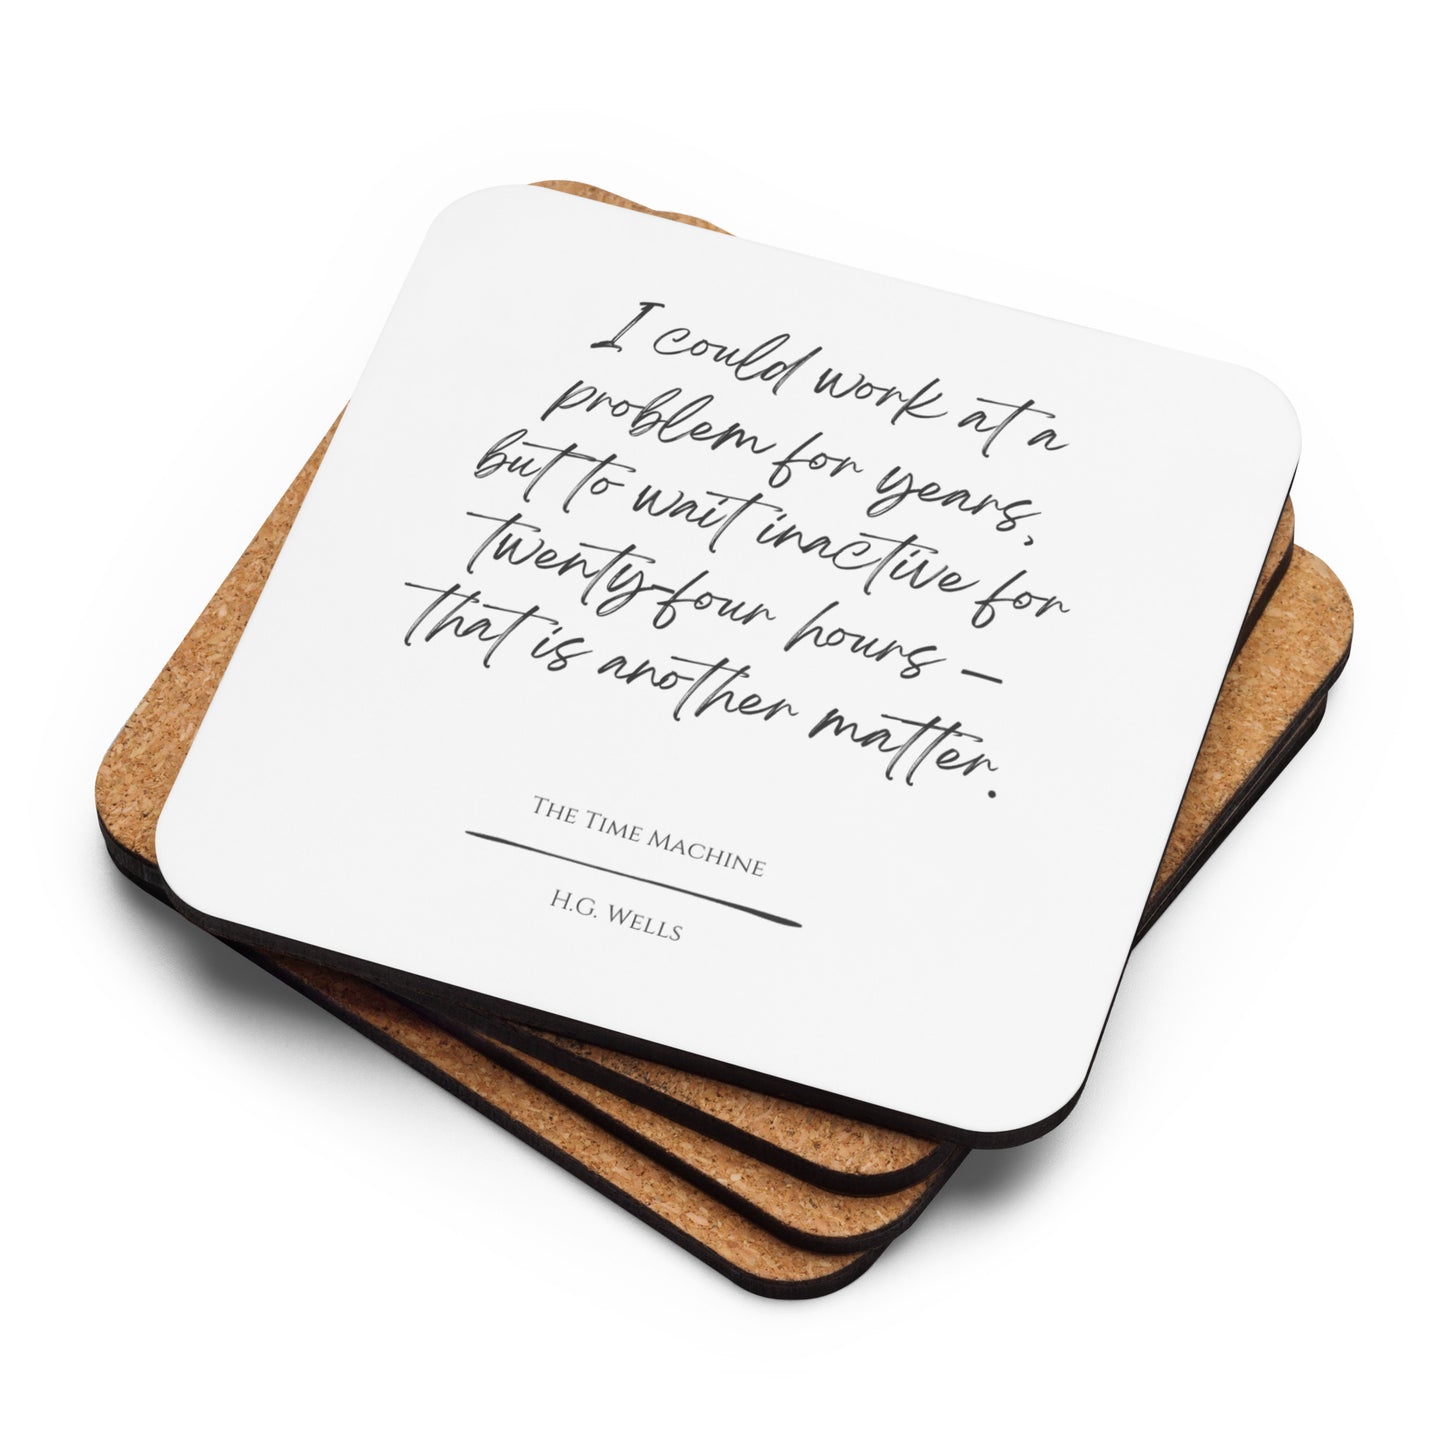 I could work at a
problem for years,
but to wait inactive for
twenty-four hours –
that is another matter.
The Time Machine
H.G. Wells